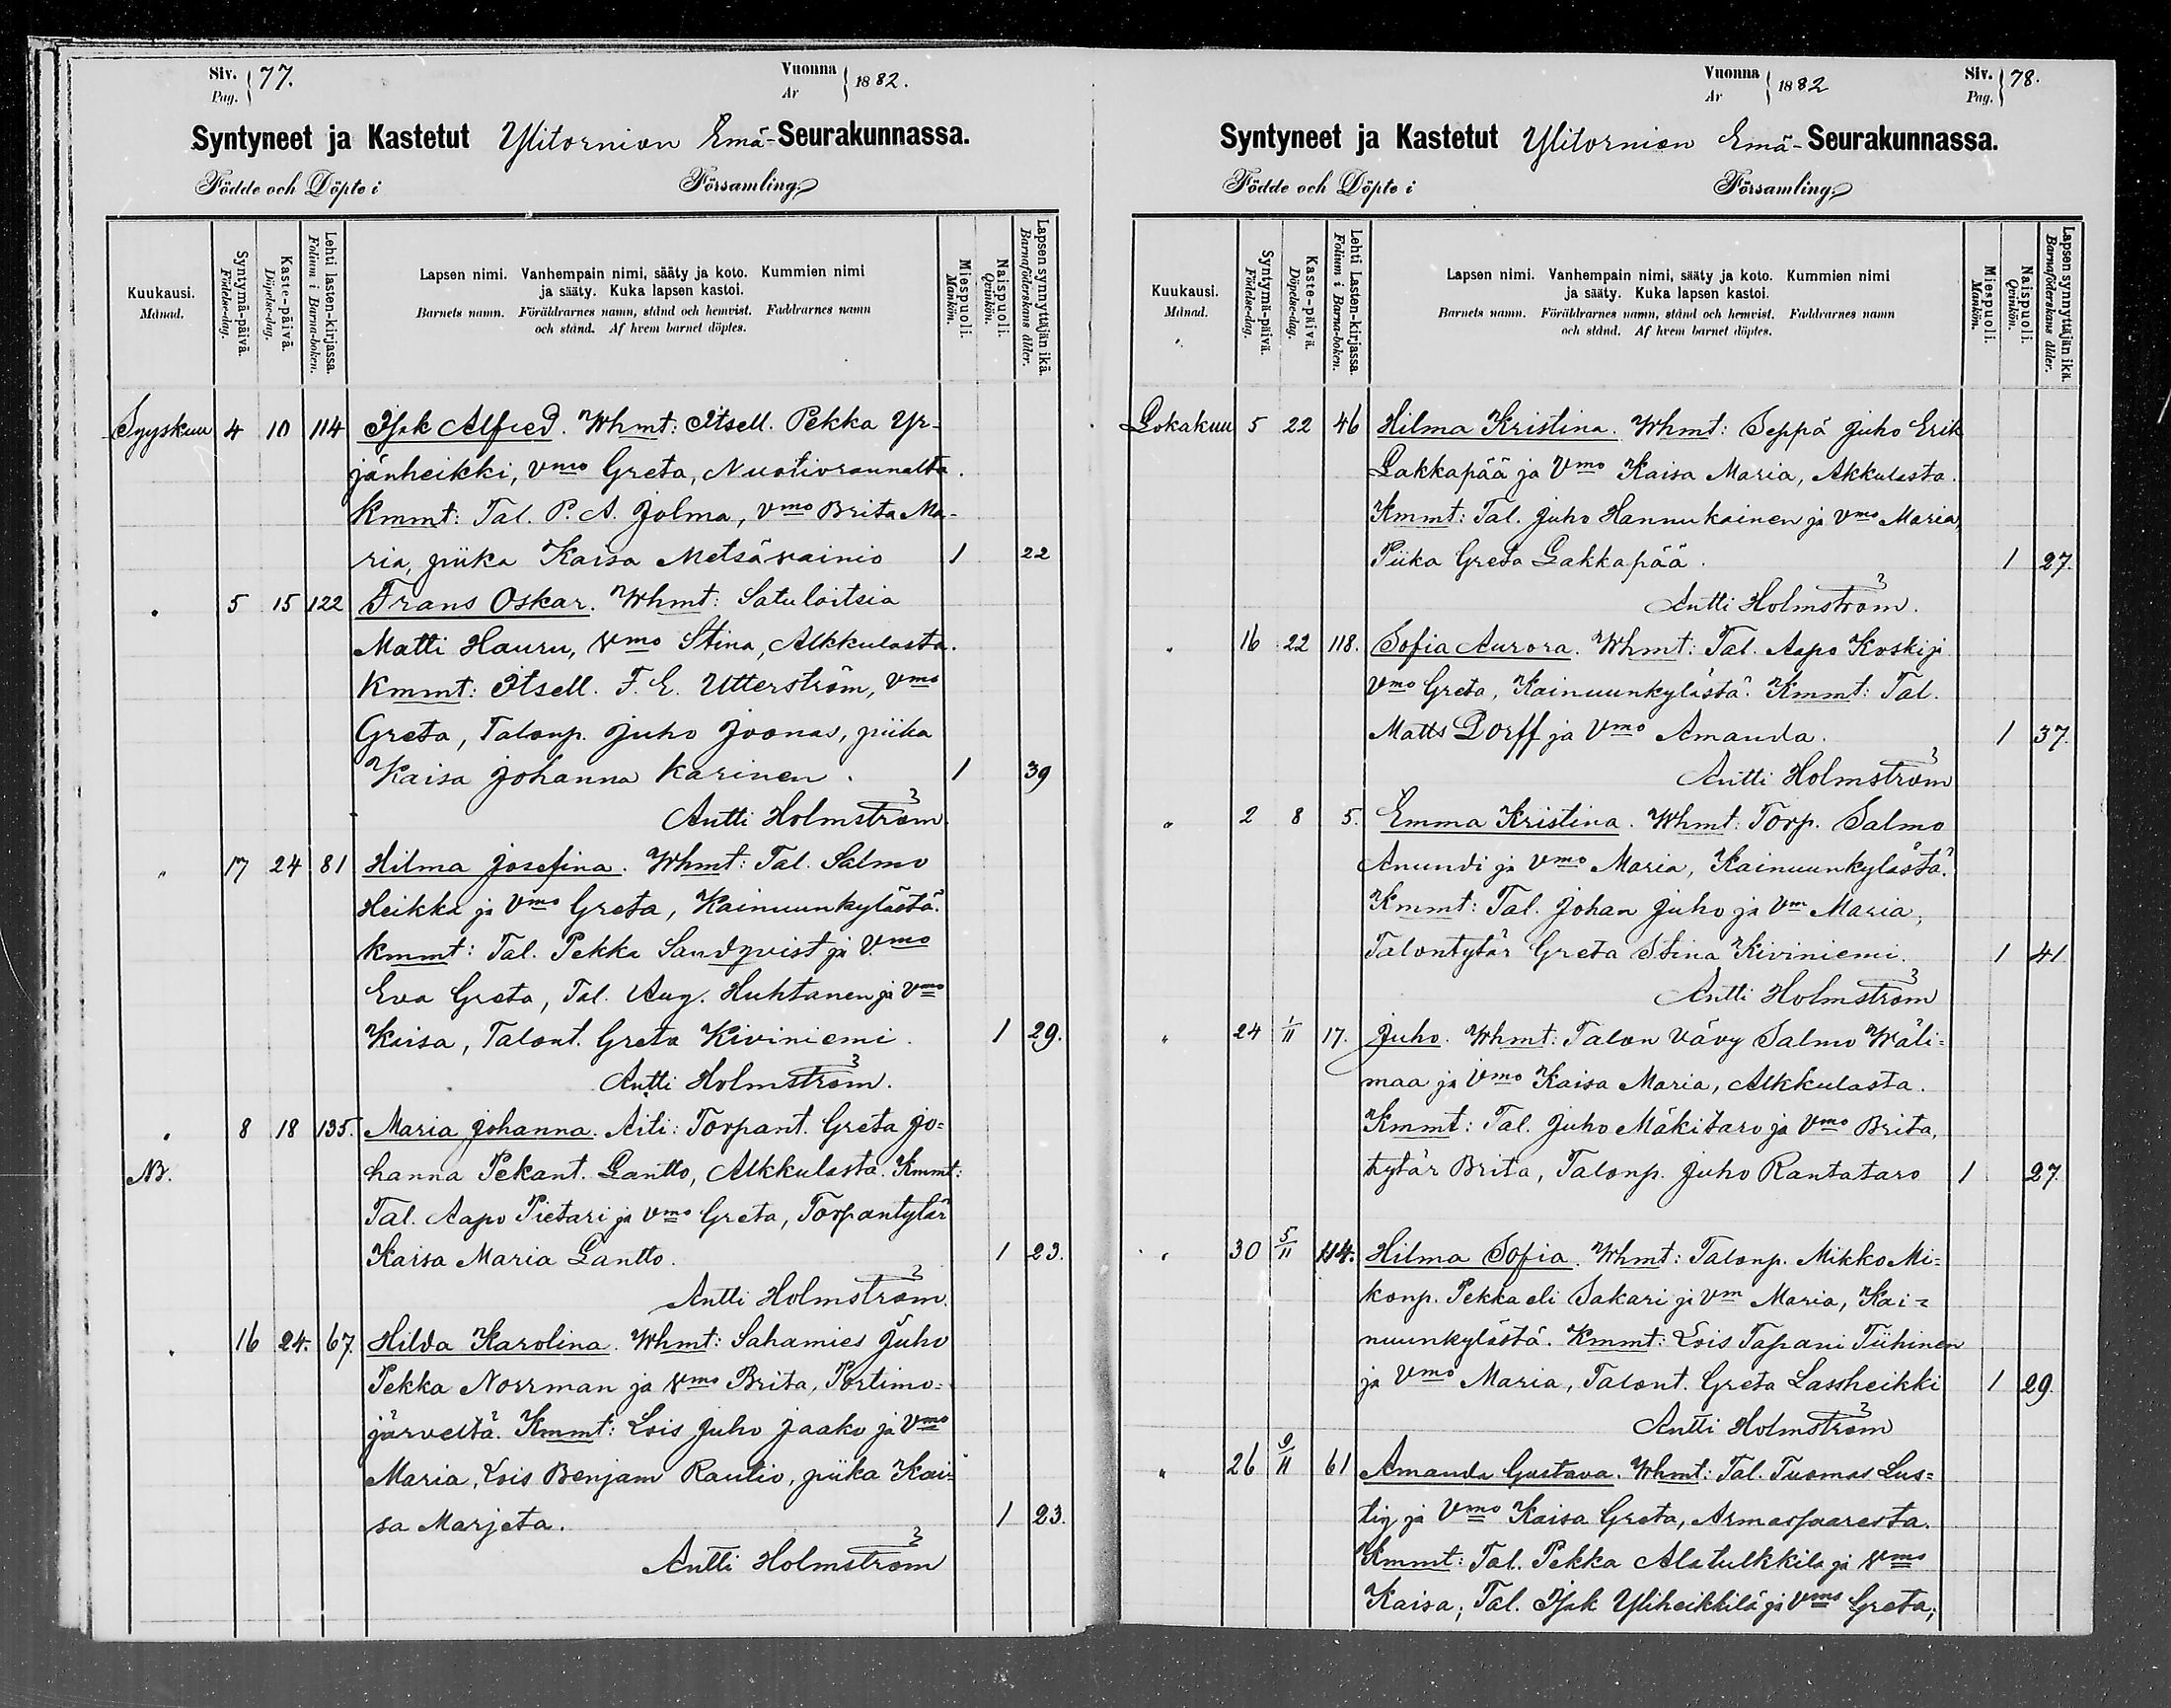 Siv. 77.
Pag.
Vuonna 1882.
År
Syntyneet ja Kastetut Ylitornion Emä-Seurakunnassa.
Födde och Döpte i Församling.
Kuukausi. Månad.
Syntymä-päivä. Födelse-dag.
Kaste-päivä. Döpelse-dag.
Lehti lasten-kirjassa. Folium i Barna-boken.
Lapsen nimi. Vanhempain nimi, sääty ja koto. Kummien nimi
ja sääty. Kuka lapsen kastoi.
Barnets namn. Föräldrarnes namn, stånd och hemvist. Faddrarnes namn
och stånd. Af hvem barnet döptes.
Miespuoli. Mankön.
Naispuoli. Qvinkön.
Lapsen synnyttäjän ikä. Barnaföderskans ålder.
Syyskuu 4 10 114 Isak Alfred. Whmt: Itsell. Pekka Yr-
jänheikki, vmo Greta, Nuotiorannalta.
Kmmt: Tal. P. A. Jolma, vmo Brita Ma-
ria, piika Kaisa Metsävainio 1 22
" 5 15 122 Frans Oskar. Whmt: Satuloitsia
Matti Hauru, vmo Stina, Alkkulasta.
Kmmt: Itsell. F. E. Utterström, vmo
Greta, Talonp. Juho Joonas, piika
Kaisa Johanna Karinen. 1 39
Antti Holmström.
" 17 24 81 Hilma Josefina. Whmt: Tal. Salmo
Heikka ja Vmo Greta, Kainuunkylästä.
Kmmt: Tal. Pekka Sandqvist ja Vmo
Eva Greta, Tal. Aug. Huhtanen ja Vmo
Kaisa, Talont. Greta Kiviniemi. 1 29.
Antti Holmström.
" 8 18 135. Maria Johanna. Äiti: Torpant. Greta Jo=
NB. hanna Pekant. Lantto, Alkkulasta. Kmmt:
Tal. Aapo Pietari ja vmo Greta, Torpantytär
Kaisa Maria Lantto. 1 23.
Antti Holmström.
" 16 24. 67. Hilda Karolina. Whmt: Sahamies Juho
Pekka Norrman ja vmo Brita, Portimo=
järveltä. Kmmt: Lois Juho Jaako ja Vmo
Maria, Lois Benjam Rautio, piika Kai=
sa Marjeta. 1 23.
Antti Holmström
Vuonna 1882
År
Siv. 78.
Pag.
Syntyneet ja Kastetut Ylitornion Emä-Seurakunnassa.
Födde och Döpte i Församling.
Kuukausi. Månad.
Syntymä-päivä. Födelse-dag.
Kaste-päivä. Döpelse-dag.
Lehti Lasten-kirjassa. Folium i Barna-boken.
Lapsen nimi. Vanhempain nimi, sääty ja koto. Kummien nimi
ja sääty. Kuka lapsen kastoi.
Barnets namn. Föräldrarnes namn, stånd och hemvist. Faddrarnes namn
och stånd. Af hvem barnet döptes.
Miespuoli. Mankön.
Naispuoli. Qvinkön.
Lapsen synnyttäjän ikä. Barnaföderskans ålder.
Lokakuu 5 22 46 Hilma Kristina. Whmt: Seppä Juho Erik
Lakkapää ja Vmo Kaisa Maria, Akkulasta.
Kmmt: Tal. Juho Hannukainen ja Vmo Maria,
Piika Greta Lakkapää. 1 27.
Antti Holmström.
" 16 22 118. Sofia Aurora. Whmt: Tal. Aapo Koski ja
Vmo Greta, Kainuunkylästä. Kmmt: Tal.
Matts Dorff ja Vmo Amanda. 1 37.
Antti Holmström
" 2 8 5. Emma Kristina. Whmt: Torp. Salmo
Anundi ja Vmo Maria, Kainuunkylästä.
Kmmt: Tal. Johan Juho ja Vm Maria,
Talontytär Greta Stina Kiviniemi. 1 41
Antti Holmström
" 24 1/11 17. Juho. Whmt: Talon vävy Salmo Wäli=
maa ja Vmo Kaisa Maria, Alkkulasta.
Kmmt: Tal. Juho Mäkitaro ja Vmo Brita,
tytär Brita, Talonp. Juho Rantataro 1 27.
" 30 5/11 114. Hilma Sofia. Whmt: Talonp. Mikko Mi=
konp. Pekka eli Sakari ja Vm Maria, Kai=
nuunkylästä. Kmmt: Lois Tapani Tiihinen
ja Vmo Maria, Talont. Greta Lassheikki 1 29.
Antti Holmström
" 26 9/11 61 Amanda Gustava. Whmt: Tal. Tuomas Lus=
tig ja Vmo Kaisa Greta, Armasaaresta.
Kmmt: Tal. Pekka Alatulkkila ja vmo
Kaisa, Tal. Isak Yliheikkilä ja Vmo Greta,